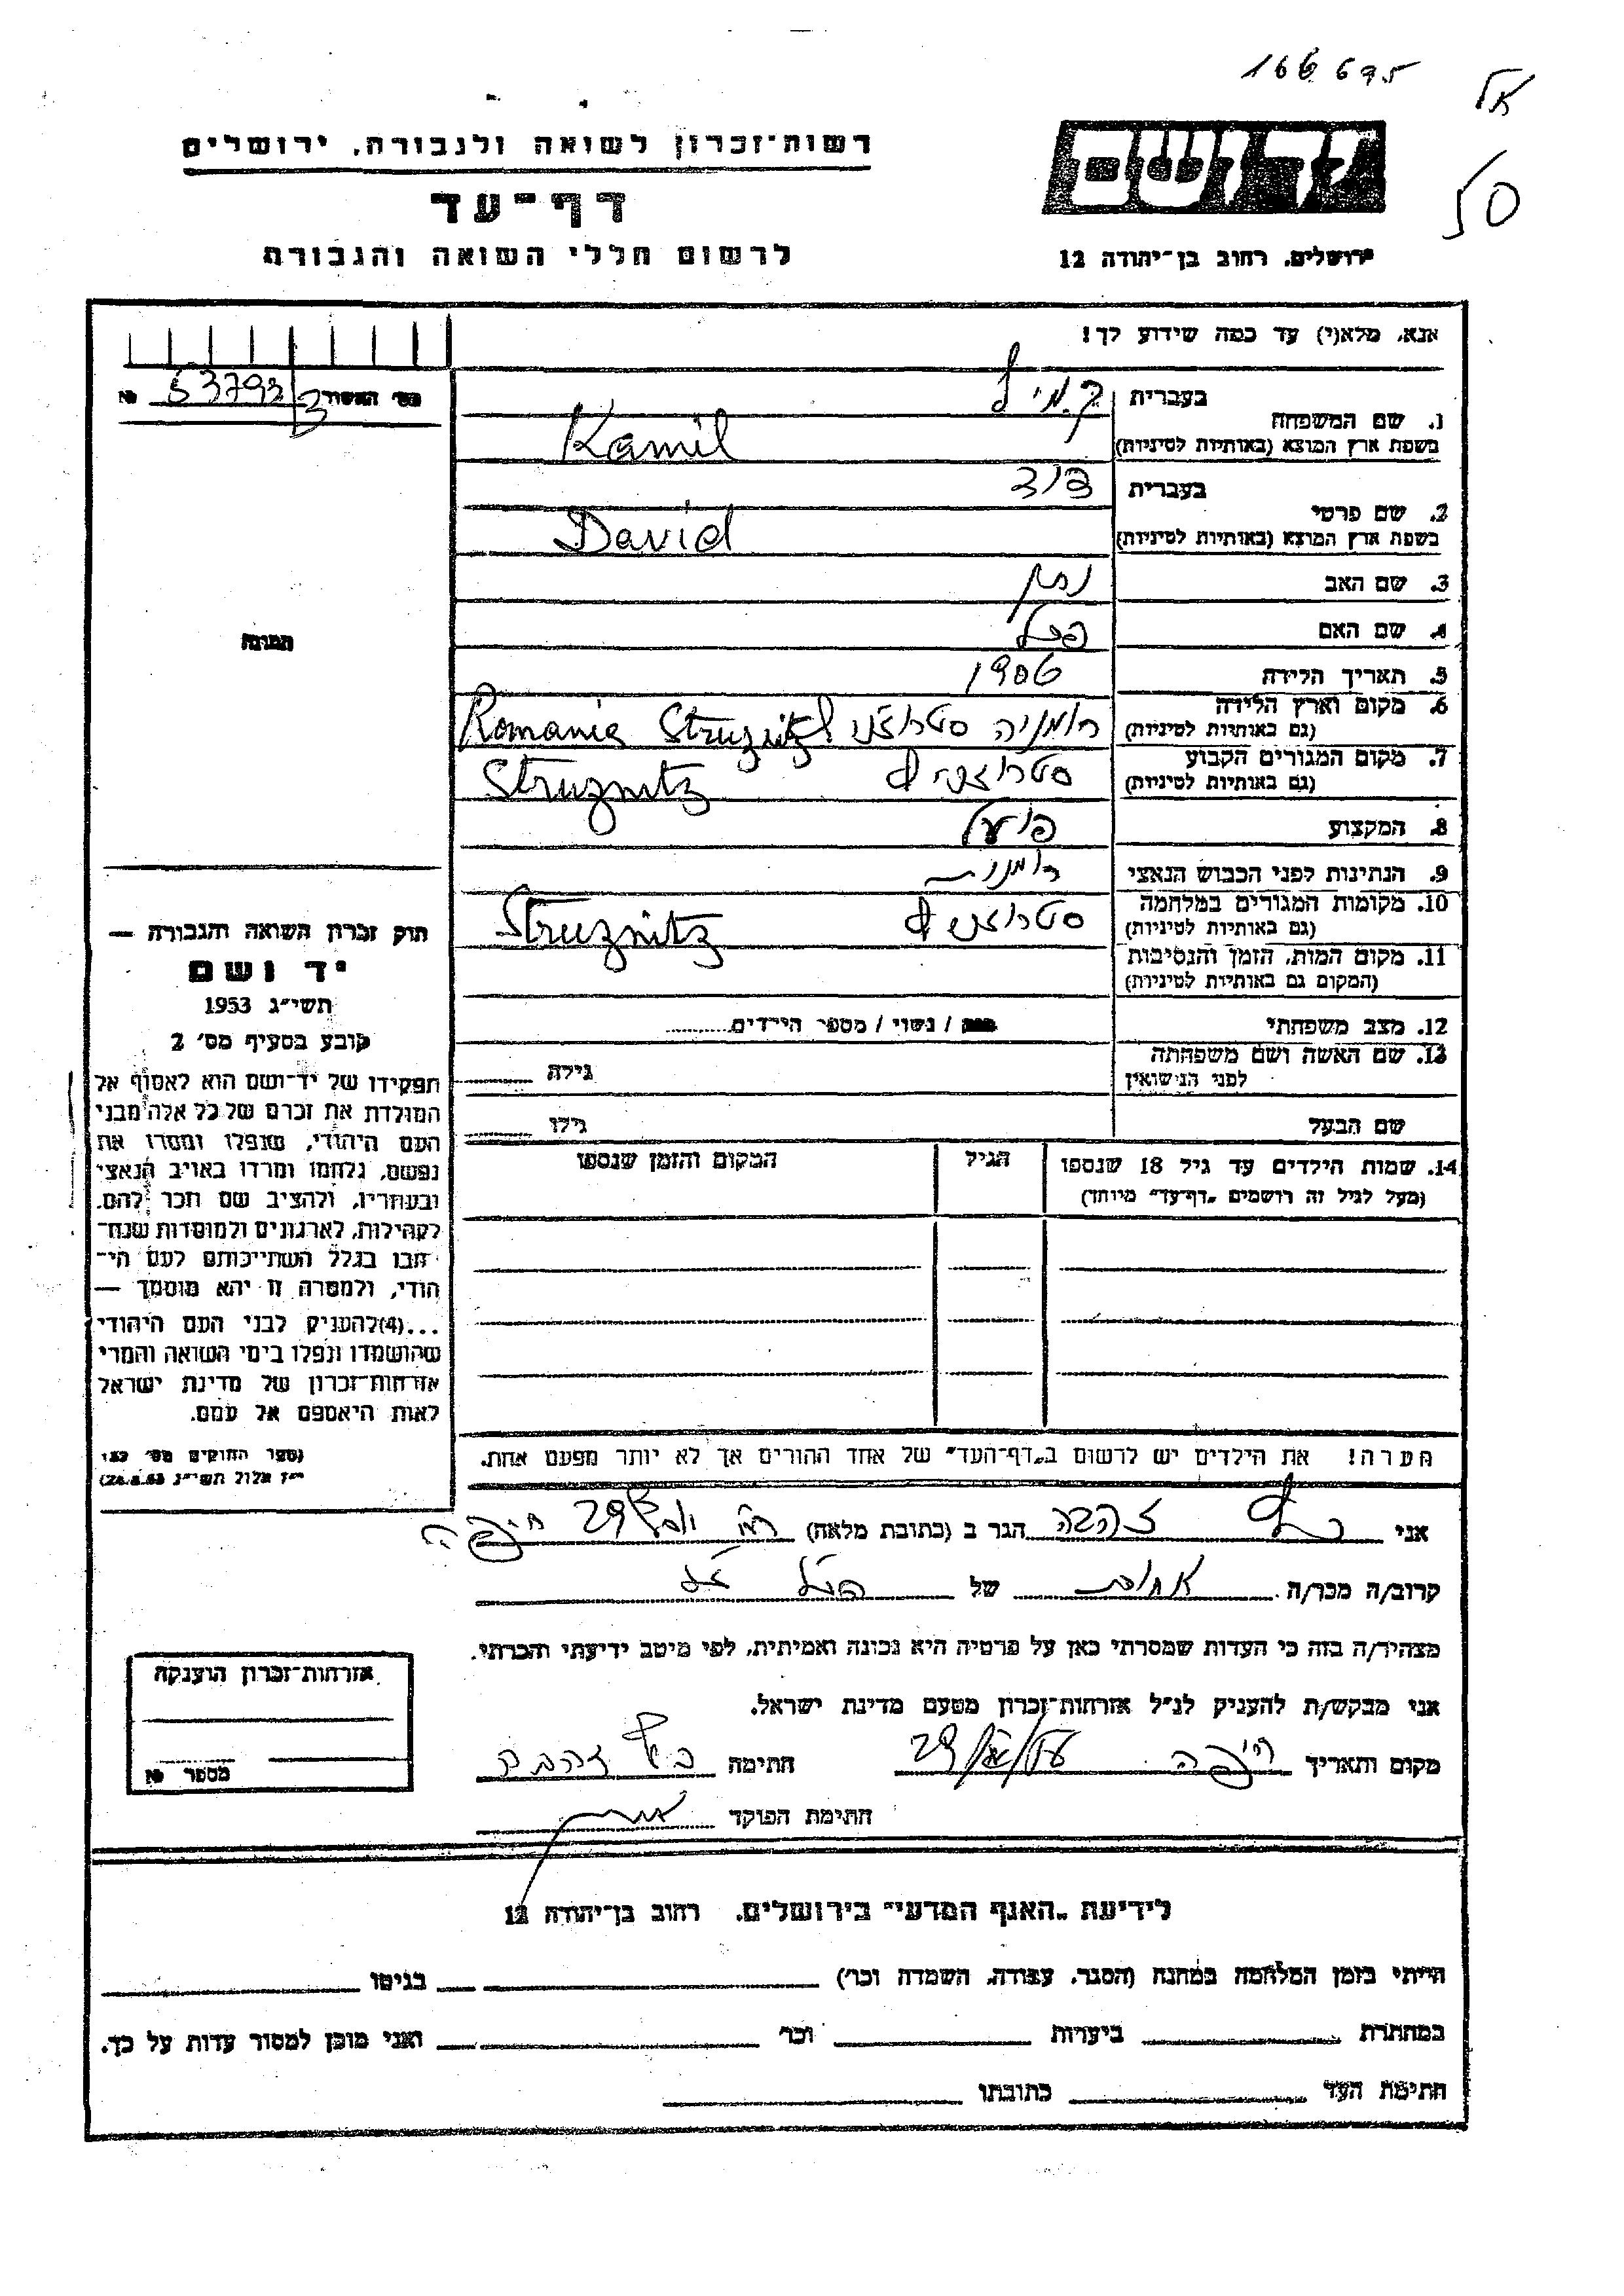 166675
אל
50
יד ושם
רשות־זכרון לשואה ולגבורה, ירושלים
דף־עד
לרשום חללי השואה והגבורה
ירושלים, רחוב בן־יהודה 12
אנא, מלא(י) עד כמה שידוע לך!
מס' האשור 53793/3 №
1. שם המשפחה
בעברית קמיל
בשפת ארץ המוצא (באותיות לטיניות) Kamil
2. שם פרטי
בעברית דוד
בשפת ארץ המוצא (באותיות לטיניות) David
3. שם האב נתן
4. שם האם
5. תאריך הלידה 1906
6. מקום וארץ הלידה רומניה Romania Struznitz
(גם באותיות לטיניות)
7. מקום המגורים הקבוע Struznitz
(גם באותיות לטיניות)
8. המקצוע פועל
9. הנתינות לפני הכבוש הנאצי רומנית
10. מקומות המגורים במלחמה Struznitz
(גם באותיות לטיניות)
11. מקום המות, הזמן והנסיבות
(המקום גם באותיות לטיניות)
12. מצב משפחתי רווק / נשוי / מספר הילדים
13. שם האשה ושם משפחתה
לפני הנישואין גילה
שם הבעל גילו
14. שמות הילדים עד גיל 18 שנספו הגיל המקום והזמן שנספו
(מעל לגיל זה רושמים „דף־עד” מיוחד)
תמונה
חוק זכרון השואה והגבורה —
יד ושם
תשי״ג 1953
קובע בסעיף מס׳ 2
תפקידו של יד־ושם הוא לאסוף אל
המולדת את זכרם של כל אלה מבני
העם היהודי, שנפלו ומסרו את
נפשם, נלחמו ומרדו באויב הנאצי
ובעוזריו, ולהציב שם וזכר להם,
לקהילות, לארגונים ולמוסדות שנח־
רבו בגלל השתייכותם לעם הי־
הודי, ולמטרה זו יהא מוסמך —
...(4) להעניק לבני העם היהודי
שהושמדו ונפלו בימי השואה והמרי
אזרחות־זכרון של מדינת ישראל
לאות היאספם אל עמם.
(ספר החוקים מס׳ 132
י״ז אלול תשי״ג 28.8.53)
הערה! את הילדים יש לרשום ב„דף־העד” של אחד ההורים אך לא יותר מפעם אחת.
אני זהבה הגר ב (כתובת מלאה) 29 חיפה
קרוב/ה מכר/ה אחות של הנ״ל
מצהיר/ה בזה כי העדות שמסרתי כאן על פרטיה היא נכונה ואמיתית, לפי מיטב ידיעתי והכרתי.
אני מבקש/ת להעניק לנ״ל אזרחות־זכרון מטעם מדינת ישראל.
מקום ותאריך חיפה חתימה זהבה
חתימת הפוקד
אזרחות־זכרון הוענקה
מספר №
לידיעת „האגף המדעי” בירושלים, רחוב בן־יהודה 12
הייתי בזמן המלחמה במחנה (הסגר, עבודה, השמדה וכו׳) בגיטו
במחתרת ביערות וכו׳ ואני מוכן למסור עדות על כך.
חתימת העד כתובתו